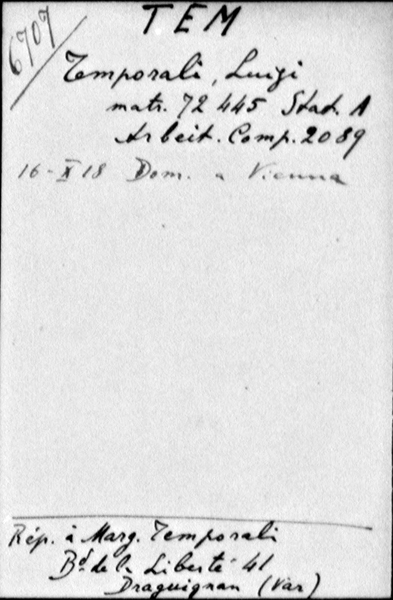 TEM
6707
Temporali, Luigi
matr. 72 445 Stad. A
Arbeit. Comp. 2089
16-X 18 Dom. a Vienna
Rép. à Marg. Temporali
Bd. de la Liberté 41
Draguignan (Var)